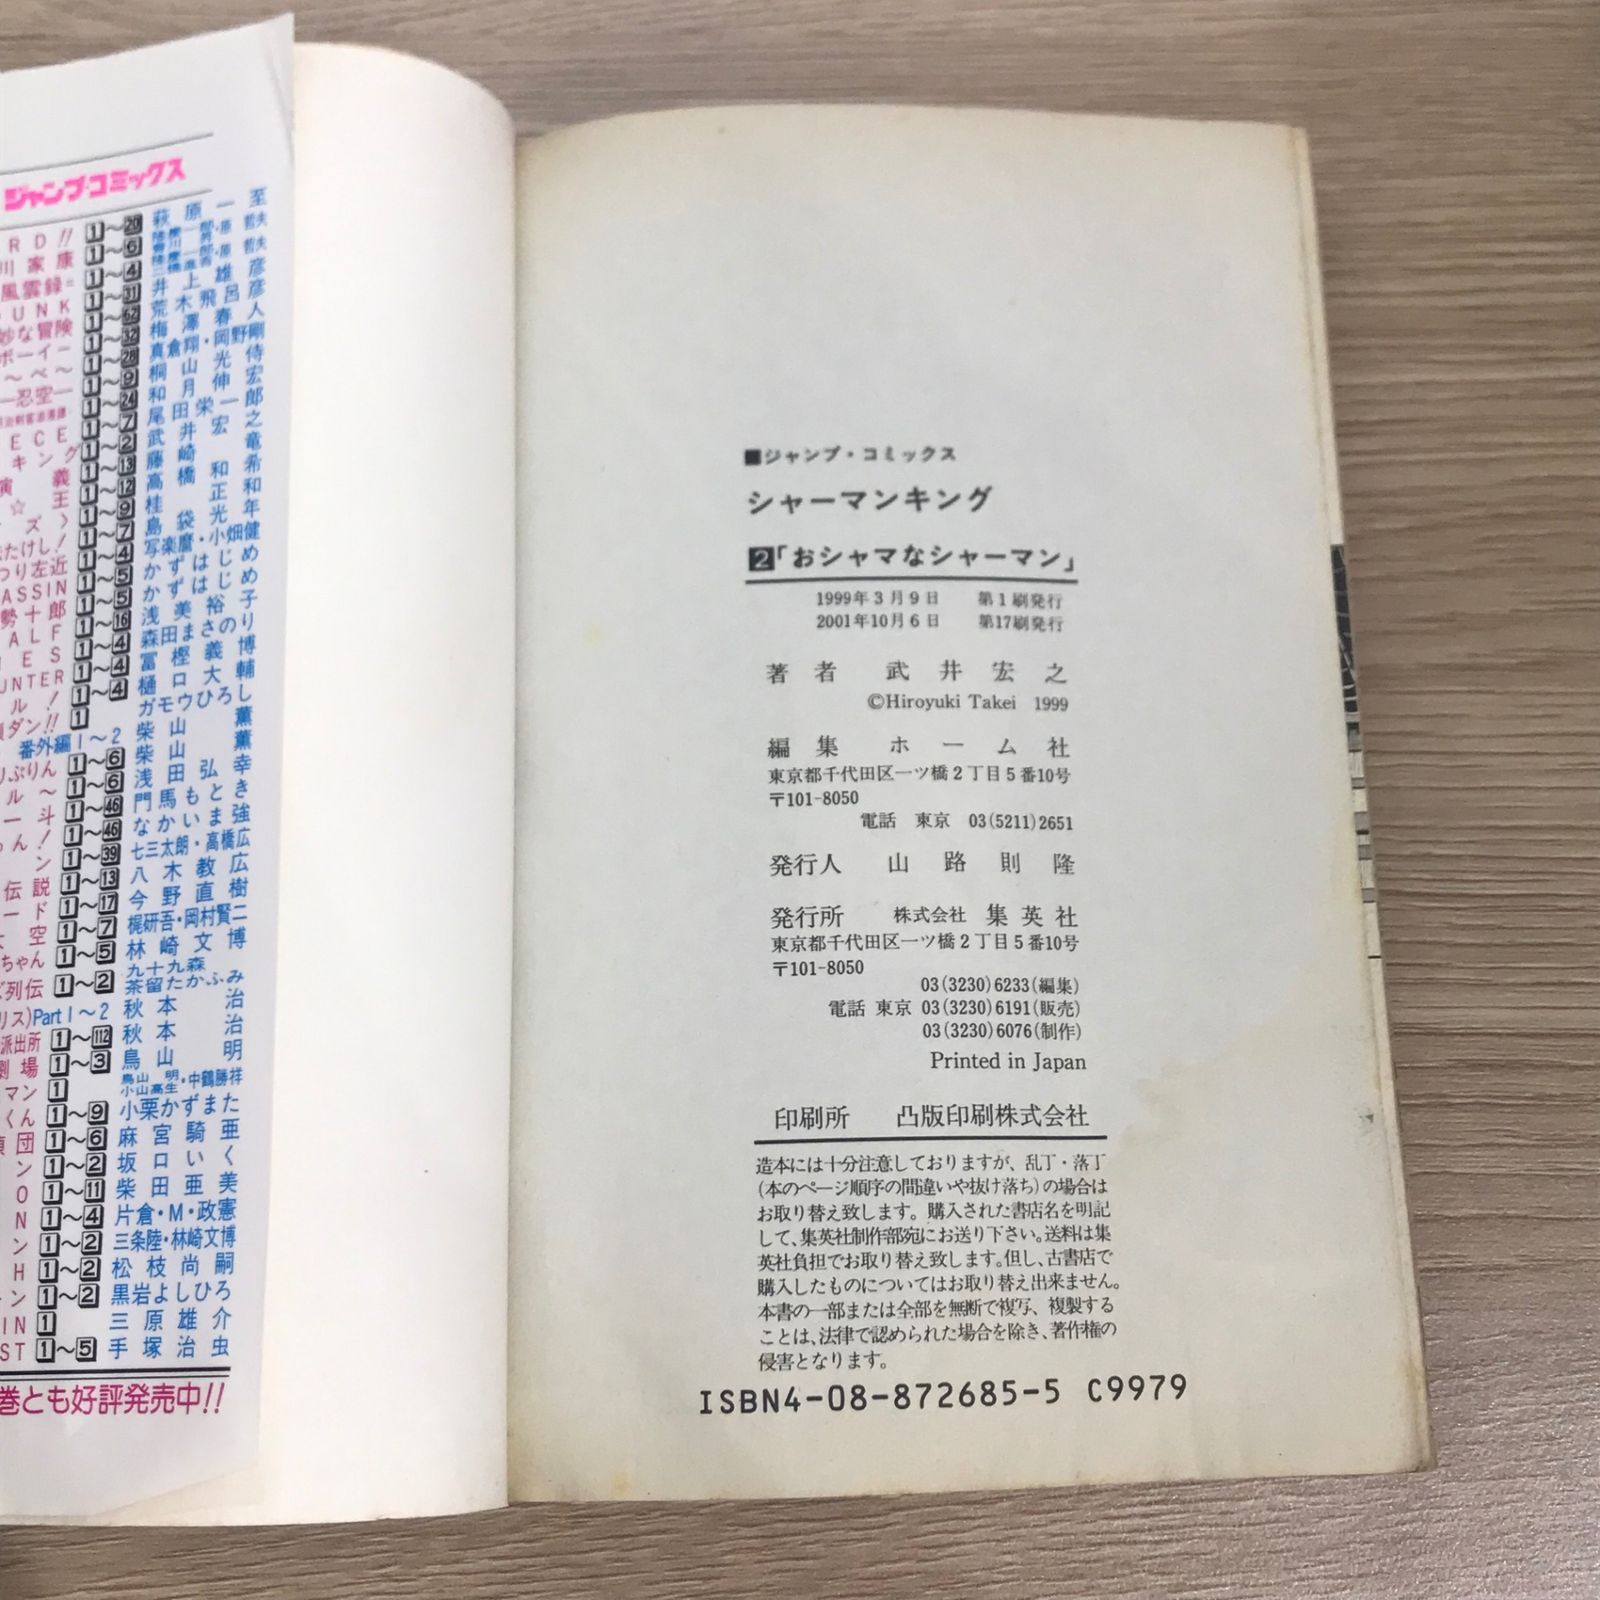 ジャンプ・コミックス
RD!! 1〜20 萩原一至
川家康 1〜6
風雲録 1〜4
UNK 1〜31 井上雄彦
妙な冒険 1〜62 荒木飛呂彦
ボーイ 1〜32 梅澤春人
〜べ〜 1〜28 真倉翔・岡野剛
―忍空― 1〜9 桐山光侍
1〜24 和月伸宏
ECE 1〜7 尾田栄一郎
キング 1〜2 武井宏之
演義 1〜13 藤崎竜
☆王 1〜12 高橋和希
ズ〉 1〜9 桂正和
たけし! 1〜7 島袋光年
つり左近 1〜4 写楽麿・小畑健
ASSIN 1〜5 かずはじめ
勢十郎 1〜5 かずはじめ
ALF 1〜16 浅美裕子
ES 1〜4 森田まさのり
UNTER 1〜4 冨樫義博
ル! 1〜4 樋口大輔
ダン!! 1 ガモウひろし
番外編1〜2 柴山薫
りぷりん 1〜6 柴山薫
ル〜 1〜6 浅田弘幸
ー斗 1〜46 門馬もとき
ん! 1〜46 なかいま強
ン 1〜39 七三太朗・高橋広
伝説 1〜13 八木教広
ード 1〜17 今野直樹
空 1〜7 梶研吾・岡村賢二
ちゃん 1〜5 林崎文博
列伝 1〜2 九十九森 茶留たかふみ
リス)Part1〜2 秋本治
派出所 1〜112 秋本治
劇場 1〜3 鳥山明
マン 1 鳥山明・中鶴勝祥 小山高生
くん 1〜9 小栗かずまた
偵団 1〜6 麻宮騎亜
ン 1〜2 坂口いく
O 1〜11 柴田亜美
N 1〜4 片倉・M・政憲
ン 1〜2 三条陸・林崎文博
H 1〜2 松枝尚嗣
ン 1〜2 黒岩よしひろ
IN 1 三原雄介
ST 1〜5 手塚治虫
巻とも好評発売中!!
■ジャンプ・コミックス
シャーマンキング
2「おシャマなシャーマン」
1999年3月9日 第1刷発行
2001年10月6日 第17刷発行
著者 武井宏之
©Hiroyuki Takei 1999
編集 ホーム社
東京都千代田区一ツ橋2丁目5番10号
〒101-8050
電話 東京 03(5211)2651
発行人 山路則隆
発行所 株式会社 集英社
東京都千代田区一ツ橋2丁目5番10号
〒101-8050
03(3230)6233(編集)
電話 東京 03(3230)6191(販売)
03(3230)6076(制作)
Printed in Japan
印刷所 凸版印刷株式会社
造本には十分注意しておりますが、乱丁・落丁
(本のページ順序の間違いや抜け落ち)の場合は
お取り替え致します。購入された書店名を明記
して、集英社制作部宛にお送り下さい。送料は集
英社負担でお取り替え致します。但し、古書店で
購入したものについてはお取り替え出来ません。
本書の一部または全部を無断で複写、複製する
ことは、法律で認められた場合を除き、著作権の
侵害となります。
ISBN4-08-872685-5 C9979